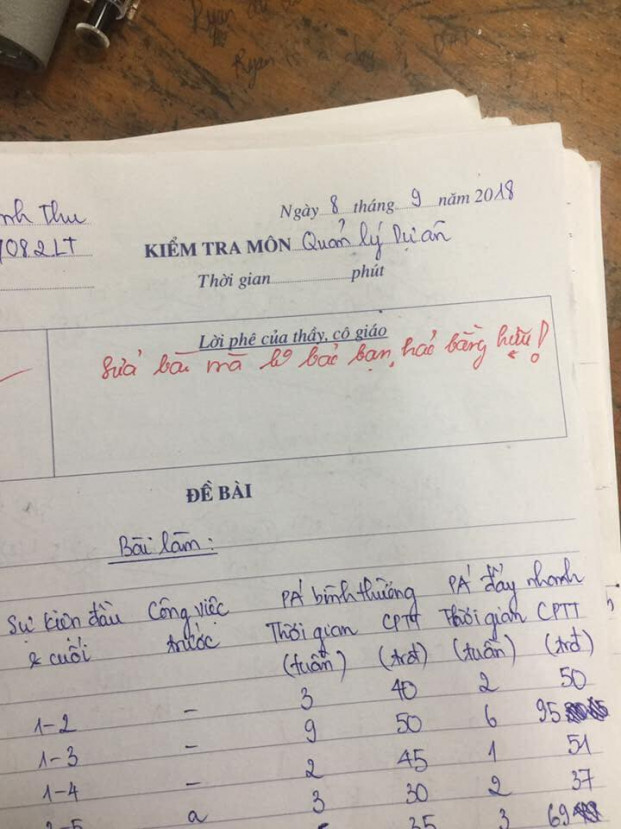 nh Thu
Ngày 8 tháng 9 năm 2018
082LT
KIỂM TRA MÔN Quản lý Dự án
Thời gian phút
Lời phê của thầy, cô giáo
Sửa bài mà ko báo bạn, hảo bằng hữu!
ĐỀ BÀI
Bài làm:
Sự kiện đầu Công việc PA bình thường PA đẩy nhanh
& cuối trước Thời gian CPTT Thời gian CPTT
(tuần) (trđ) (tuần) (trđ)
1-2 - 3 40 2 50
1-3 - 9 50 6 95
1-4 - 2 45 1 51
a 3 30 2 37
35 3 69